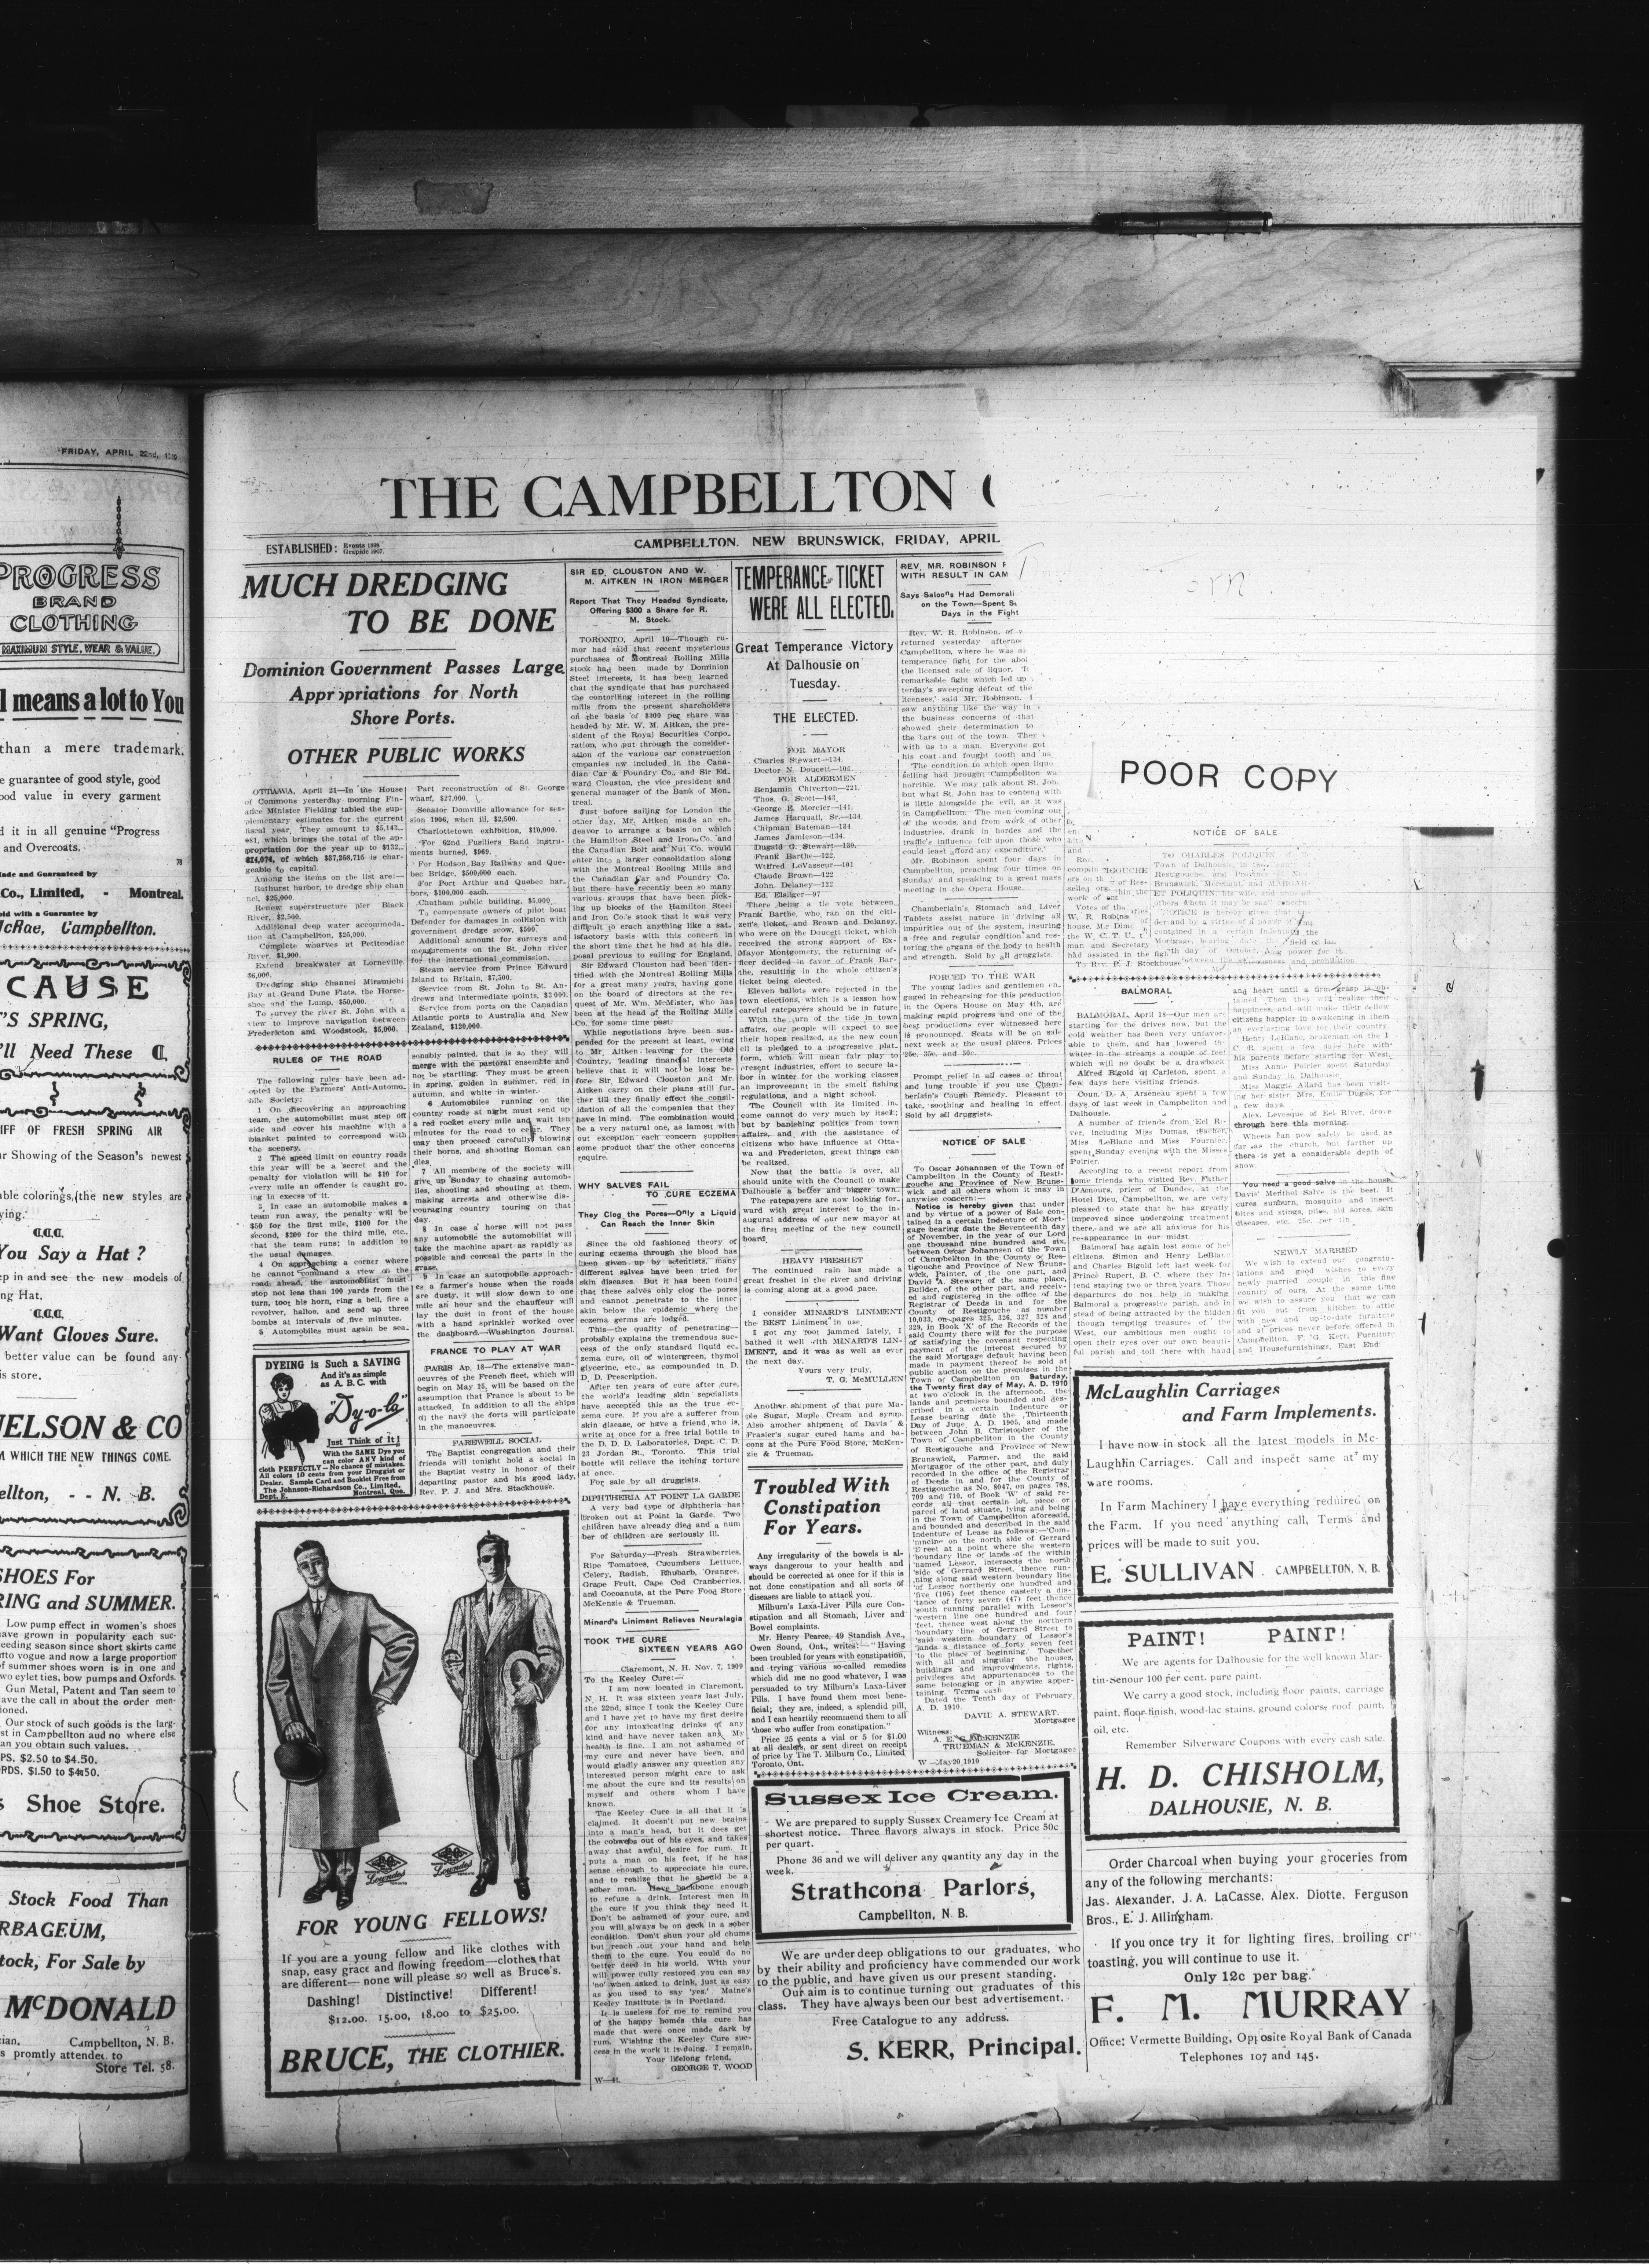 FRIDAY, APRIL 22nd,
PROGRESS
BRAND
CLOTHING
MAXIMUM STYLE, WEAR & VALUE.
l means a lot to You
than a mere trademark.
e guarantee of good style, good
ood value in every garment
d it in all genuine "Progress
and Overcoats.
ade and Guaranteed by
Co., Limited, - Montreal.
old with a Guarantee by
McRae, Campbellton.
CAUSE
'S SPRING,
'll Need These
IFF OF FRESH SPRING AIR
ur Showing of the Season's newest
able colorings, the new styles are
ying.
You Say a Hat ?
ep in and see the new models of
ng Hat.
Want Gloves Sure.
better value can be found any-
is store.
NELSON & CO
M WHICH THE NEW THINGS COME.
ellton, - - N. B.
SHOES For
RING and SUMMER.
Low pump effect in women's shoes
Gun Metal, Patent and Tan seem to
ave the call in about the order men-
ioned.
Our stock of such goods is the larg-
st in Campbellton aud no where else
an you obtain such values.
PS. $2.50 to $4.50.
s Shoe Store.
Stock Food Than
RBAGEUM,
tock, For Sale by
McDONALD
cian, Campbellton, N. B.
s promtly attended to
Store Tel. 58.
THE CAMPBELLTON
ESTABLISHED:
CAMPBELLTON, NEW BRUNSWICK, FRIDAY, APRIL
Torn
POOR COPY
MUCH DREDGING
TO BE DONE
Dominion Government Passes Large
Appropriations for North
Shore Ports.
OTHER PUBLIC WORKS
OTTAWA, April 21—In the House
of Commons yesterday morning Fin-
ance Minister Fielding tabled the sup-
plementary estimates for the current
Among the items on the list are:—
Bathurst harbor, to dredge ship chan
nel, $25,000.
Renew superstructure pier Black
River, $2,500.
Additional deep water accommoda-
tion at Campbellton, $25,000.
Complete wharves at Petitcodiac
River, $1,900.
Extend breakwater at Lorneville,
$6,000.
Dredging ship channel Miramichi
Bay at Grand Dune Flats, the Horse-
shoe and the Lump, $50,000.
To survey the river St. John with a
view to improve navigation between
Fredericton and Woodstock, $5,000.
Part reconstruction of St. George
wharf, $27,000.
Senator Domville allowance for ses-
sion 1906, when ill, $2,500.
Charlottetown exhibition, $10,000.
For 62nd Fusiliers Band instru-
ments burned, 1969.
For Hudson Bay Railway and Que-
bec Bridge, $500,000 each.
For Port Arthur and Quebec har-
bors, $100,000 each.
Chatham public building, $5,000.
To compensate owners of pilot boat
Defender for damages in collision with
government dredge scow, $500.
Additional amount for surveys and
measurements on the St. John river
for the international commission.
Steam service from Prince Edward
Island to Britain, $7,500.
Service from St. John to St. An-
drews and intermediate points, $3 000.
Service from ports on the Canadian
Atlantic ports to Australia and New
Zealand, $120,000.
RULES OF THE ROAD
The following rules have been ad-
opted by the Farmers' Anti-Automo-
bile Society:
1 On discovering an approaching
team, the automobilist must stop off
side and cover his machine with a
blanket painted to correspond with
the scenery.
2 The speed limit on country roads
this year will be a secret and the
penalty for violation will be $10 for
every mile an offender is caught go-
ing in excess of it.
3 In case an automobile makes a
team run away, the penalty will be
$50 for the first mile, $100 for the
second, $200 for the third mile, etc.,
that the team runs; in addition to
the usual damages.
4 On approaching a corner where
he cannot command a view of the
road ahead, the automobilist must
stop not less than 100 yards from the
turn, toot his horn, ring a bell, fire a
revolver, halloo, and send up three
bombs at intervals of five minutes.
5 Automobiles must again be sea-
sonably painted, that is so they will
merge with the pastoral ensemble and
not be startling. They must be green
in spring, golden in summer, red in
autumn, and white in winter.
6 Automobiles running on the
country roads at night must send up
a red rocket every mile and wait ten
minutes for the road to clear. They
may then proceed carefully, blowing
their horns, and shooting Roman can
dles
7 All members of the society will
give up Sunday to chasing automob-
iles, shooting and shouting at them,
making arrests and otherwise dis-
couraging country touring on that
day.
8 In case a horse will not pass
any automobile the automobilist will
take the machine apart as rapidly as
possible and conceal the parts in the
grass.
9 In case an automobile approach-
es a farmer's house when the roads
are dusty, it will slow down to one
mile an hour and the chauffeur will
lay the dust in front of the house
with a hand sprinkler worked over
the dashboard.—Washington Journal.
FRANCE TO PLAY AT WAR
PARIS Ap. 18—The extensive man-
oeuvres of the French fleet, which will
begin on May 15, will be based on the
assumption that France is about to be
attacked. In addition to all the ships
of the navy the forts will participate
in the manoeuvres.
FAREWELL SOCIAL
The Baptist congregation and their
friends will tonight hold a social in
the Baptist vestry in honor of their
departing pastor and his good lady,
Rev. P. J. and Mrs. Stackhouse.
DYEING is Such a SAVING
And it's as simple
as A. B. C. with
"Dy-o-la"
Just Think of It!
With the SAME Dye you
can color ANY kind of
cloth PERFECTLY—No chance of mistakes.
All colors 10 cents from your Druggist or
Dealer. Sample Card and Booklet Free from
The Johnson-Richardson Co., Limited,
Dept. E. Montreal, Que.
FOR YOUNG FELLOWS!
If you are a young fellow and like clothes with
snap, easy grace and flowing freedom—clothes that
are different— none will please so well as Bruce's.
Dashing! Distinctive! Different!
$12.00. 15.00, 18.00 to $25.00.
BRUCE, THE CLOTHIER.
SIR ED. CLOUSTON AND W.
M. AITKEN IN IRON MERGER
Report That They Headed Syndicate,
Offering $300 a Share for R.
M. Stock.
TORONTO, April 10—Though ru-
mor had said that recent mysterious
purchases of Montreal Rolling Mills
stock had been made by Dominion
Steel interests, it has been learned
that the syndicate that has purchased
the contorlling interest in the rolling
mills from the present shareholders
on the basis of $300 per share was
headed by Mr. W. M. Aitken, the pre-
sident of the Royal Securities Corpo-
ration, who put through the consider-
ation of the various car construction
dian Car & Foundry Co., and Sir Ed-
ward Clouston, the vice president and
general manager of the Bank of Mon-
treal.
Just before sailing for London the
other day, Mr. Aitken made an en-
deavor to arrange a basis on which
the Hamilton Steel and Iron Co. and
the Canadian Bolt and Nut Co. would
enter into a larger consolidation along
with the Montreal Rooling Mills and
the Canadian Car and Foundry Co.
but there have recently been so many
various groups have been pick-
ing up blocks of the Hamilton Steel
and Iron Co.'s stock that it was very
difficult to erach anything like a sat-
isfactory basis with this concern in
the short time he had at his dis-
posal previous to sailing for England.
Sir Edward Clouston had been iden-
tified with the Montreal Rolling Mills
for a great many years, having gone
on the board of directors at the re-
quest of Mr. Wm. McMister, who has
been at the head of the Rolling Mills
Co. for some time past.
While negotiations have been sus-
pended for the present at least, owing
to Mr. Aitken leaving for the Old
Country, leading financial interests
believe that it will not be long be-
fore Sir Edward Clouston and Mr.
Aitken carry on their plans still fur-
ther till they finally effect the consil-
idation of all the companies that they
have in mind. The combination would
be a very natural one, as lamost with
out exception each concern supplies
some product that the other concerns
require.
WHY SALVES FAIL
TO CURE ECZEMA
They Clog the Pores—Only a Liquid
Can Reach the Inner Skin
Since the old fashioned theory of
curing eczema through the blood has
been given up by scientists, many
different salves have been tried for
skin diseases. But it has been found
that these salves only clog the pores
and cannot penetrate to the inner
skin below the epidemic where the
eczema germs are lodged.
This—the quality of penetrating—
probably explains the tremendous suc-
cess of the only standard liquid ec-
zema cure, oil of wintergreen, thymol
glycerine, etc., as compounded in D.
D. D. Prescription.
After ten years of cure after cure,
the world's leading skin sepcialists
have accepted this as the true ec-
zema cure. If you are a sufferer from
skin disease, or have a friend who is,
write at once for a free trial bottle to
the D. D. D. Laboratories, Dept. C. D.
23 Jordan St., Toronto. This trial
bottle will relieve the itching torture
at once.
For sale by all druggists.
DIPHTHERIA AT POINT LA GARDE
A very bad type of diphtheria has
broken out at Point la Garde. Two
children have already died and a num
ber of children are seriously ill.
For Saturday—Fresh Strawberries,
Ripe Tomatoes, Cucumbers Lettuce,
Celery, Radish, Rhubarb, Oranges,
Grape Fruit, Cape Cod Cranberries,
and Cocoanuts, at the Pure Food Store
McKenzie & Trueman.
Minard's Liniment Relieves Neuralagia
TOOK THE CURE
SIXTEEN YEARS AGO
Claremont, N. H. Nov. 7, 1909
To the Keeley Cure:—
I am now located in Claremont,
N. H. It was sixteen years last July,
the 22nd, since I took the Keeley Cure
and I have yet to have my first desire
for any intoxicating drinks of any
kind and have never taken any. My
health is fine. I am not ashamed of
my cure and never have been, and
would gladly answer any question any
interested person might care to ask
me about the cure and its results on
myself and others whom I have
known.
The Keeley Cure is all that it is
claimed. It doesn't put new brains
into a man's head, but it does get
the cobwebs out of his eyes, and takes
away that awful desire for rum. It
puts a man on his feet, if he has
sense enough to appreciate his cure,
and to realize that he should be a
sober man. Have backbone enough
to refuse a drink. Interest men in
the cure if you think they need it.
Don't be ashamed of your cure, and
you will always be on deck in a sober
condition. Don't shun your old chums
but reach out your hand and help
them to the cure. You could do no
better deed in his world. With your
will power cully restored you can say
'no' when asked to drink, just as easy
as you used to say 'yes.' Maine's
Keeley Institute is in Portland.
It is useless for me to remind you
of the happy homes this cure has
made that were once made dark by
rum. Wishing the Keeley Cure suc-
cess in the work it is doing. I remain,
Your lifelong friend,
GEORGE T. WOOD
TEMPERANCE TICKET
WERE ALL ELECTED
Great Temperance Victory
At Dalhousie on
Tuesday.
THE ELECTED.
FOR MAYOR
Charles Stewart—134.
Doctor N. Doucett—101.
FOR ALDERMEN
Benjamin Chiverton—221.
Thos. G. Scott—143
George E. Mercier—141.
James Harquail, Sr.—134.
Chipman Bateman—134.
James Jamieson—134.
Dugald G. Stewart—130.
Frank Barthe—122.
Wilfred LeVasseur—101
Claude Brown—122
John Delaney—122
Ed. Elsliger—97
There being a tie vote between
Frank Barthe, who ran on the citi-
zen's ticket, and Brown and Delaney,
who were on the Doucett ticket, which
received the strong support of Ex-
Mayor Montgomery, the returning of-
ficer decided in favor of Frank Bar-
the, resulting in the whole citizen's
ticket being elected.
Eleven ballots were rejected in the
town elections, which is a lesson how
careful ratepayers should be in future
With the turn of the tide in town
affairs, our people will expect to see
their hopes realized, as the new coun
cil is pledged to a progressive plat-
form, which will mean fair play to
present industries, effort to secure la-
bor in winter for the working classes
an improveemnt in the smelt fishing
regulations, and a night school.
The Council with its limited in-
come cannot do very much by itself;
but by banishing politics from town
affairs, and with the assistance of
citizens who have influence at Otta-
wa and Fredericton, great things can
be realized.
Now that the battle is over, all
should unite with the Council to make
Dalhousie a beffer and bigger town.
The ratepayers are now looking for-
ward with great interest to the in-
augural address of our new mayor at
the first meeting of the new council
board.
HEAVY FRESHET
The continued rain has made a
great freshet in the river and driving
is coming along at a good pace.
I consider MINARD'S LINIMENT
the BEST Liniment in use.
I got my foot jammed lately, I
bathed it well with MINARD'S LIN-
IMENT, and it was as well as ever
the next day.
Yours very truly,
T. G. McMULLEN
Another shipment of that pure Ma-
ple Sugar, Maple Cream and syrup.
Also another shipment of Davis &
Frasier's sugar cured hams and ba-
cons at the Pure Food Store, McKen-
zie & Trueman.
Troubled With
Constipation
For Years.
Any irregularity of the bowels is al-
ways dangerous to your health and
should be corrected at once for if this is
not done constipation and all sorts of
diseases are liable to attack you.
Milburn's Laxa-Liver Pills cure Con-
stipation and all Stomach, Liver and
Bowel complaints.
Mr. Henry Pearce, 49 Standish Ave.,
Owen Sound, Ont., writes:—"Having
been troubled for years with constipation,
and trying various so-called remedies
which did me no good whatever, I was
persuaded to try Milburn's Laxa-Liver
Pills. I have found them most bene-
ficial; they are, indeed, a splendid pill,
and I can heartily recommend them to all
those who suffer from constipation."
Price 25 cents a vial or 5 for $1.00
at all dealers, or sent direct on receipt
of price by The T. Milburn Co., Limited,
Toronto, Ont.
REV. MR. ROBINSON
WITH RESULT IN CAM
Says Saloons Had Demorali
on the Town—Spent
Days in the Fight
Rev. W. R. Robinson, of
returned yesterday afternoo
Campbellton, where he was
temperance fight for the abol
the licensed sale of liquor.
remarkable fight which led up
terday's sweeping defeat of the
licenses,' said Mr. Robinson. I
saw anything like the way in
the business concerns of that
showed their determination to
the bars out of the town. They
with us to a man. Everyone got
his coat and fought tooth and na
'The condition to which open liquo
selling had brought Campbellton wa
horrible. We may talk about St. John
but what St. John has to contend with
is little alongside the evil, as it was
in Campbellton. The men coming out
of the woods, and from work of other
industries, drank in hordes and the
traffic's influence fell upon those who
could least afford any expenditure.'
Mr. Robinson spent four days in
Campbellton, preaching four times on
Sunday and speaking to a great mass
meeting in the Opera House.
Chamberlain's Stomach and Liver
Tablets assist nature in driving all
impurities out of the system, insuring
a free and regular condition and res-
toring the organs of the body to health
and strength. Sold by all druggists.
FORCED TO THE WAR
The young ladies and gentlemen en-
gaged in rehearsing for this production
in the Opera House on May 4th, are
making rapid progress and one of the
best productions ever witnessed here
is pronounced. Seats will be on sale
next week at the usual places. Prices
25c. 35c. and 50c.
Prompt relief in all cases of throat
and lung trouble if you use Cham-
berlain's Cough Remedy. Pleasant to
take, soothing and healing in effect.
Sold by all druggists.
NOTICE OF SALE
To Oscar Johannsen of the Town of
Campbellton in the County of Resti-
gouche and Province of New Bruns-
wick and all others whom it may in
anywise concern:—
Notice is hereby given that under
and by virtue of a power of Sale con-
tained in a certain Indenture of Mort-
gage bearing date the Seventeenth day
of November, in the year of our Lord
one thousand nine hundred and six,
between Oscar Johannsen of the Town
of Campbellton in the County of Res-
tigouche and Province of New Bruns-
wick, Painter, of the one part, and
David A. Stewart of the same place,
Builder, of the other part, and receiv-
ed and registered in the office of the
Registrar of Deeds in and for the
County of Restigouche as number
10,033, on pages 325, 326, 327, 328 and
329, in Book 'X' of the Records of the
said County there will for the purpose
of satisfying the covenant respecting
payment of the interest secured by
the said Mortgage default having been
made in payment thereof be sold at
public auction on the premises in the
Town of Campbellton on Saturday,
the Twenty first day of May, A. D. 1910
at two o'clock in the afternoon, the
lands and premises bounded and des-
cribed in a certain Indenture or
Lease bearing date the Thirteenth
Day of June A. D. 1905, and made
between John B. Christopher of the
Town of Campbellton in the County
of Restigouche and Province of New
Brunswick, Farmer, and the said
Mortgagor of the other part, and duly
recorded in the office of the Registrar
of Deeds in and for the County of
Restigouche as No. 8047, on pages 708,
709 and 710, of Book 'W' of said re-
cords all that certain lot, piece or
parcel of land situate, lying and being
in the Town of Campbellton aforesaid,
and bounded and described in the said
Indenture of Lease as follows:—'Com-
mencing on the north side of Gerrard
Street at a point where the western
boundary line of lands of the within
named Lessor, intersects the north
side of Gerrard Street, thence run-
ning along said western boundary line
of Lessor northerly one hundred and
five (105) feet thence easterly a dis-
tance of forty seven (47) feet thence
south running parallel with Lessor's
western line one hundred and four
feet, thence west along the northern
boundary line of Gerrard Street to
said western boundary of Lessor's
lands a distance of forty seven feet
to the place of beginning.' Together
with all and singular the houses,
buildings and improvements, rights,
privileges and appurtenances to the
same belonging or in anywise apper-
taining. Terms cash
Dated the Tenth day of February,
A. D. 1910.
DAVID A. STEWART,
Mortgagee
Witness:
TRUEMAN & McKENZIE,
Solicitor for Mortgagee
W —May20,1910
NOTICE OF SALE
TO CHARLES POLIQUIN
BALMORAL
BALMORAL, April 18—Our men are
starting for the drives now, but the
cold weather has been very unfavor-
able to them, and has lowered the
water in the streams a couple of feet
which will no doubt be a drawback
Alfred Bigold of Carleton, spent a
few days here visiting friends.
Coun. D. A. Arseneau spent a few
days of last week in Campbellton and
Dalhousie.
A number of friends from Eel Ri-
ver, including Miss Dumas, teacher,
Miss LeBlanc and Miss Fournier,
spent Sunday evening with the Misses
Poirier.
According to a recent report from
some friends who visited Rev. Father
D'Amours, priest of Dundee, at the
Hotel Dieu, Campbellton, we are very
pleased to state that he has greatly
improved since undergoing treatment
there, and we are all anxious for his
re-appearance in our midst.
Balmoral has again lost some of her
citizens. Simon and Henry LeBlanc
and Charles Bigold left last week for
Prince Rupert, B. C. where they in-
tend staying two or three years. Those
departures do not help in making
Balmoral a progressive parish, and in
stead of being attracted by the hidden
though tempting treasures of the
West, our ambitious men ought to
open their eyes over our own beauti-
ful parish and toil there with hand
and heart until a firm grasp is ob-
tained. Then they will realize their
happiness, and will make their fellow
citizens happier in awakening in them
an everlasting love for their country
Henry LeBlanc, brakeman on the I.
C. R. spent a few days here with
his parents before starting for West.
Miss Annie Poirier spent Saturday
and Sunday in Dalhousie.
Miss Maggie Allard has been visit-
ing her sister, Mrs. Emile Dugas, for
a few days.
Alex. Levesque of Eel River, drove
through here this morning.
Wheels can now safely be used as
far as the church, but farther up
there is yet a considerable depth of
snow.
You need a good salve in the house.
Davis' Menthol Salve is the best. It
cures sunburn, mosquito and insect
bites and stings, piles, old sores, skin
diseases, etc. 25c. per tin.
NEWLY MARRIED
We wish to extend our congratu-
lations and good wishes to every
newly married couple in this fine
country of ours. At the same time
we wish to assure you that we can
fit you out from kitchen to attic
with new and up-to-date furniture
and at prices never before offered in
Campbellton. F. G. Kerr, Furniture
and Housefurnishings, East End.
McLaughlin Carriages
and Farm Implements.
I have now in stock all the latest models in Mc-
Laughlin Carriages. Call and inspect same at my
ware rooms.
In Farm Machinery I have everything reduired on
the Farm. If you need anything call, Terms and
prices will be made to suit you.
E. SULLIVAN CAMPBELLTON, N. B.
PAINT! PAINT!
We are agents for Dalhousie for the well known Mar-
tin-Senour 100 per cent. pure paint.
We carry a good stock, including floor paints, carriage
paint, floor-finish, wood-lac stains, ground colors, roof paint,
oil, etc.
Remember Silverware Coupons with every cash sale.
H. D. CHISHOLM,
DALHOUSIE, N. B.
Sussex Ice Cream.
We are prepared to supply Sussex Creamery Ice Cream at
shortest notice. Three flavors always in stock. Price 50c
per quart.
Phone 36 and we will deliver any quantity any day in the
week.
Strathcona Parlors,
Campbellton, N. B.
We are under deep obligations to our graduates, who
by their ability and proficiency have commended our work
to the public, and have given us our present standing.
Our aim is to continue turning out graduates of this
class. They have always been our best advertisement.
Free Catalogue to any address.
S. KERR, Principal.
Order Charcoal when buying your groceries from
any of the following merchants:
Jas. Alexander, J. A. LaCasse, Alex. Diotte, Ferguson
Bros., E. J. Allingham.
If you once try it for lighting fires, broiling or
toasting, you will continue to use it.
Only 12c per bag.
F. M. MURRAY
Office: Vermette Building, Opposite Royal Bank of Canada
Telephones 107 and 145.